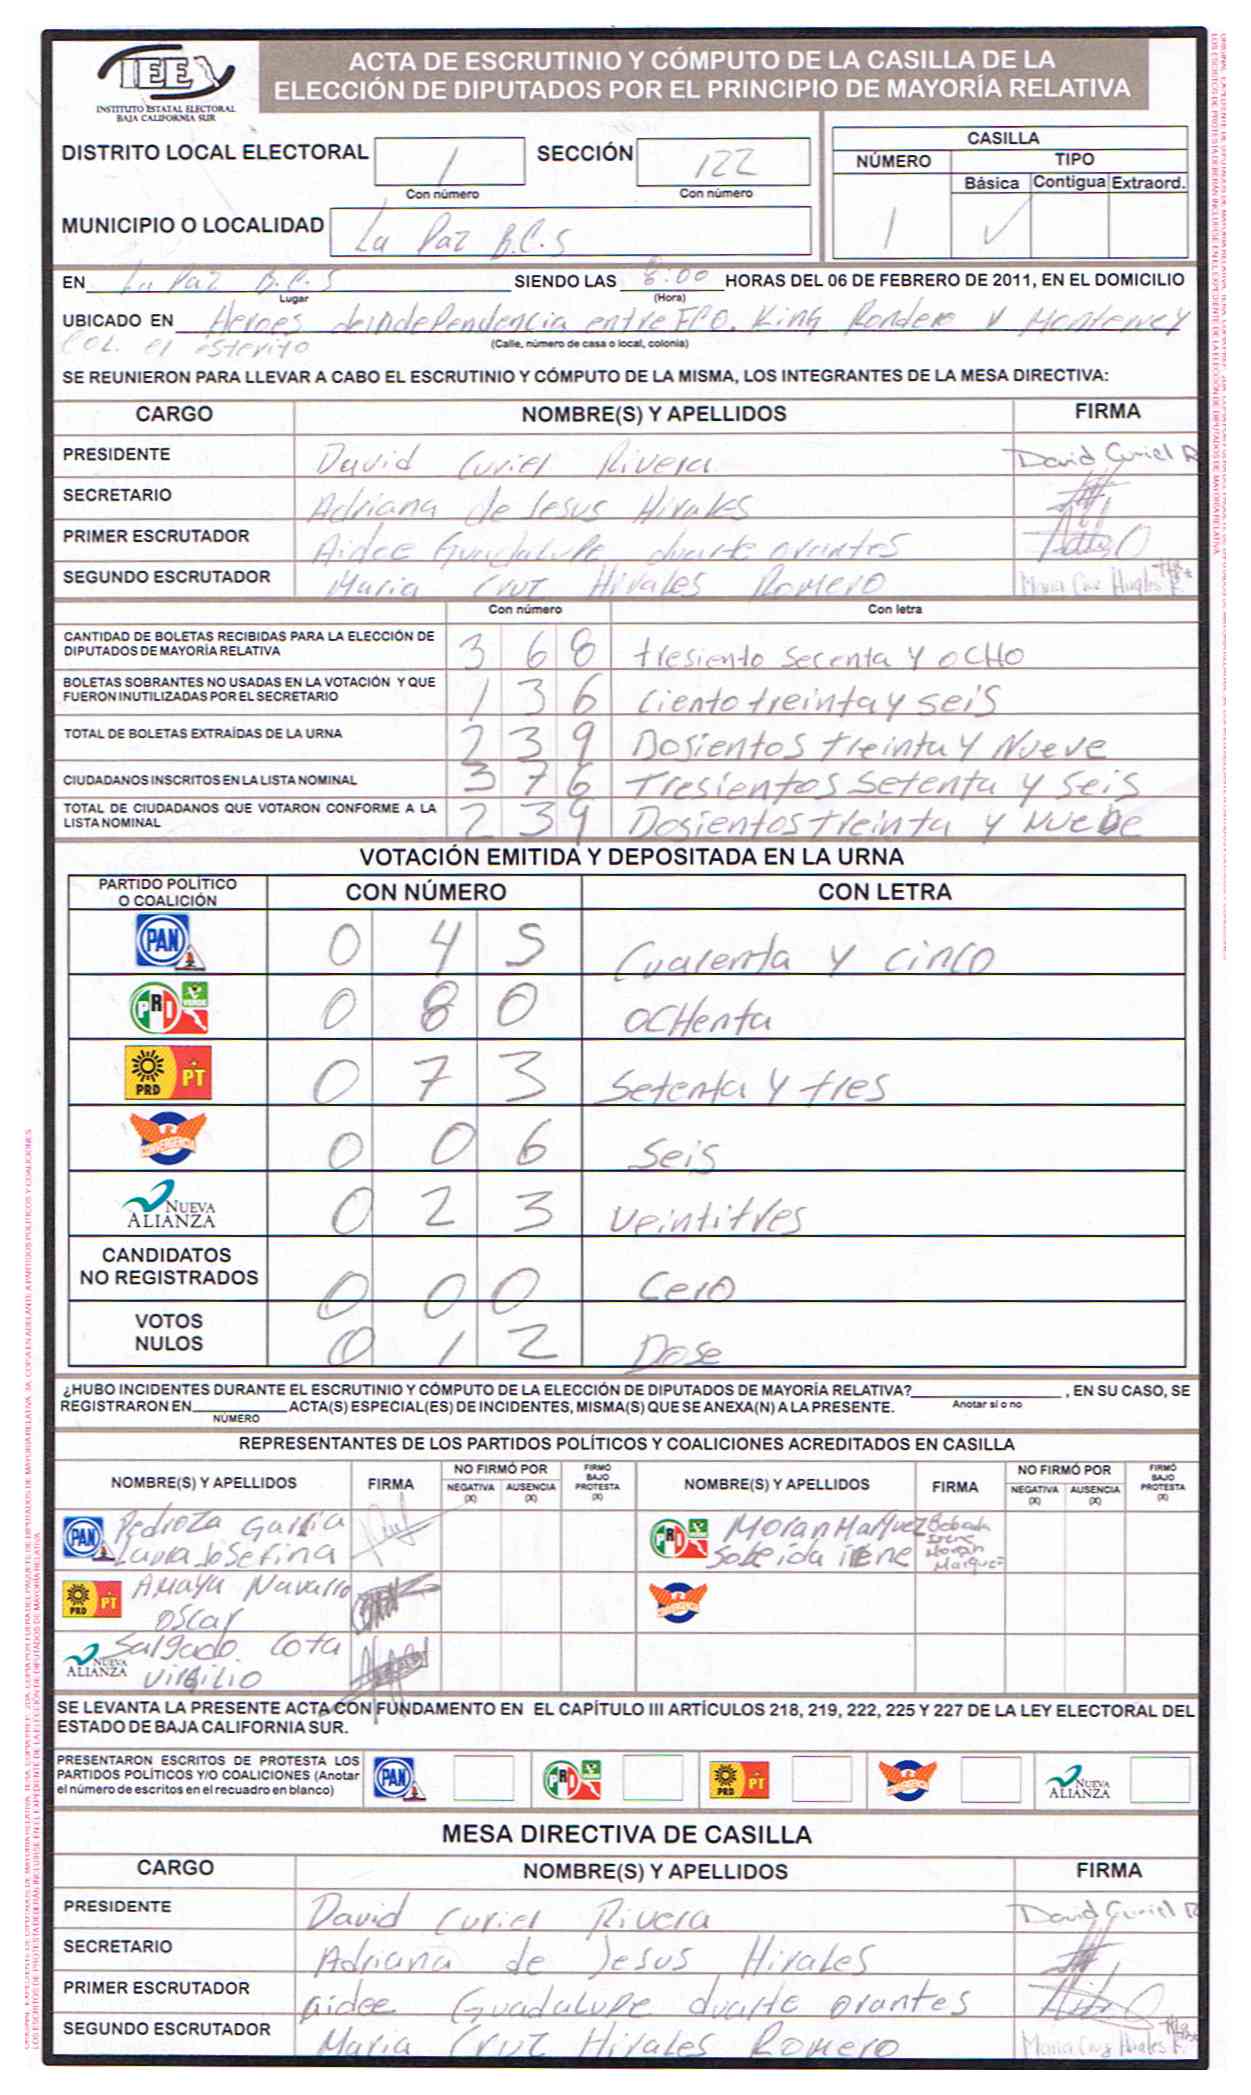 IEE
INSTITUTO ESTATAL ELECTORAL
BAJA CALIFORNIA SUR
ACTA DE ESCRUTINIO Y CÓMPUTO DE LA CASILLA DE LA
ELECCIÓN DE DIPUTADOS POR EL PRINCIPIO DE MAYORÍA RELATIVA
DISTRITO LOCAL ELECTORAL 1 SECCIÓN 122
Con número Con número
CASILLA
NÚMERO TIPO
Básica Contigua Extraord.
1 ✓
MUNICIPIO O LOCALIDAD La Paz B.C.S
EN La Paz B.C.S SIENDO LAS 8:00 HORAS DEL 06 DE FEBRERO DE 2011, EN EL DOMICILIO
Lugar (Hora)
UBICADO EN Heroes deindependencia entre FCO. King Rondero y Monterrey
COL. el esterito (Calle, número de casa o local, colonia)
SE REUNIERON PARA LLEVAR A CABO EL ESCRUTINIO Y CÓMPUTO DE LA MISMA, LOS INTEGRANTES DE LA MESA DIRECTIVA:
CARGO NOMBRE(S) Y APELLIDOS FIRMA
PRESIDENTE David Curiel Rivera David Curiel R
SECRETARIO Adriana de Jesus Hirales
PRIMER ESCRUTADOR Aidee Guadalupe duarte orantes
SEGUNDO ESCRUTADOR Maria Cruz Hirales Romero Maria Cruz Hirales R.
Con número Con letra
CANTIDAD DE BOLETAS RECIBIDAS PARA LA ELECCIÓN DE
DIPUTADOS DE MAYORÍA RELATIVA 3 6 8 tresiento secenta y OCHO
BOLETAS SOBRANTES NO USADAS EN LA VOTACIÓN Y QUE
FUERON INUTILIZADAS POR EL SECRETARIO 1 3 6 Ciento treinta y seis
TOTAL DE BOLETAS EXTRAÍDAS DE LA URNA 2 3 9 Dosientos treinta y Nueve
CIUDADANOS INSCRITOS EN LA LISTA NOMINAL 3 7 6 Tresientos setenta y seis
TOTAL DE CIUDADANOS QUE VOTARON CONFORME A LA
LISTA NOMINAL 2 3 9 Dosientos treinta y Nuebe
VOTACIÓN EMITIDA Y DEPOSITADA EN LA URNA
PARTIDO POLÍTICO
O COALICIÓN CON NÚMERO CON LETRA
PAN 0 4 5 Cuarenta y cinco
PRI VERDE 0 8 0 OCHenta
PRD PT 0 7 3 Setenta y tres
CONVERGENCIA 0 0 6 Seis
NUEVA ALIANZA 0 2 3 Veintitres
CANDIDATOS
NO REGISTRADOS 0 0 0 Cero
VOTOS
NULOS 0 1 2 Dose
¿HUBO INCIDENTES DURANTE EL ESCRUTINIO Y CÓMPUTO DE LA ELECCIÓN DE DIPUTADOS DE MAYORÍA RELATIVA? , EN SU CASO, SE
Anotar si o no
REGISTRARON EN ACTA(S) ESPECIAL(ES) DE INCIDENTES, MISMA(S) QUE SE ANEXA(N) A LA PRESENTE.
NÚMERO
REPRESENTANTES DE LOS PARTIDOS POLÍTICOS Y COALICIONES ACREDITADOS EN CASILLA
NOMBRE(S) Y APELLIDOS FIRMA NO FIRMÓ POR NEGATIVA (X) AUSENCIA (X) FIRMÓ BAJO PROTESTA (X) NOMBRE(S) Y APELLIDOS FIRMA NO FIRMÓ POR NEGATIVA (X) AUSENCIA (X) FIRMÓ BAJO PROTESTA (X)
PAN Pedroza Garcia
Laura Josefina
PRI Moran Marquez
Sobeida irene
PRD PT Amaya Navarro
oscar
CONVERGENCIA
NUEVA ALIANZA Salgado Cota
Virgilio
SE LEVANTA LA PRESENTE ACTA CON FUNDAMENTO EN EL CAPÍTULO III ARTÍCULOS 218, 219, 222, 225 Y 227 DE LA LEY ELECTORAL DEL
ESTADO DE BAJA CALIFORNIA SUR.
PRESENTARON ESCRITOS DE PROTESTA LOS
PARTIDOS POLÍTICOS Y/O COALICIONES (Anotar
el número de escritos en el recuadro en blanco)
PAN PRI PRD PT CONVERGENCIA NUEVA ALIANZA
MESA DIRECTIVA DE CASILLA
CARGO NOMBRE(S) Y APELLIDOS FIRMA
PRESIDENTE David Curiel Rivera David Curiel R
SECRETARIO Adriana de Jesus Hirales
PRIMER ESCRUTADOR aidee Guadalupe duarte orantes
SEGUNDO ESCRUTADOR Maria Cruz Hirales Romero Maria Cruz Hirales R.